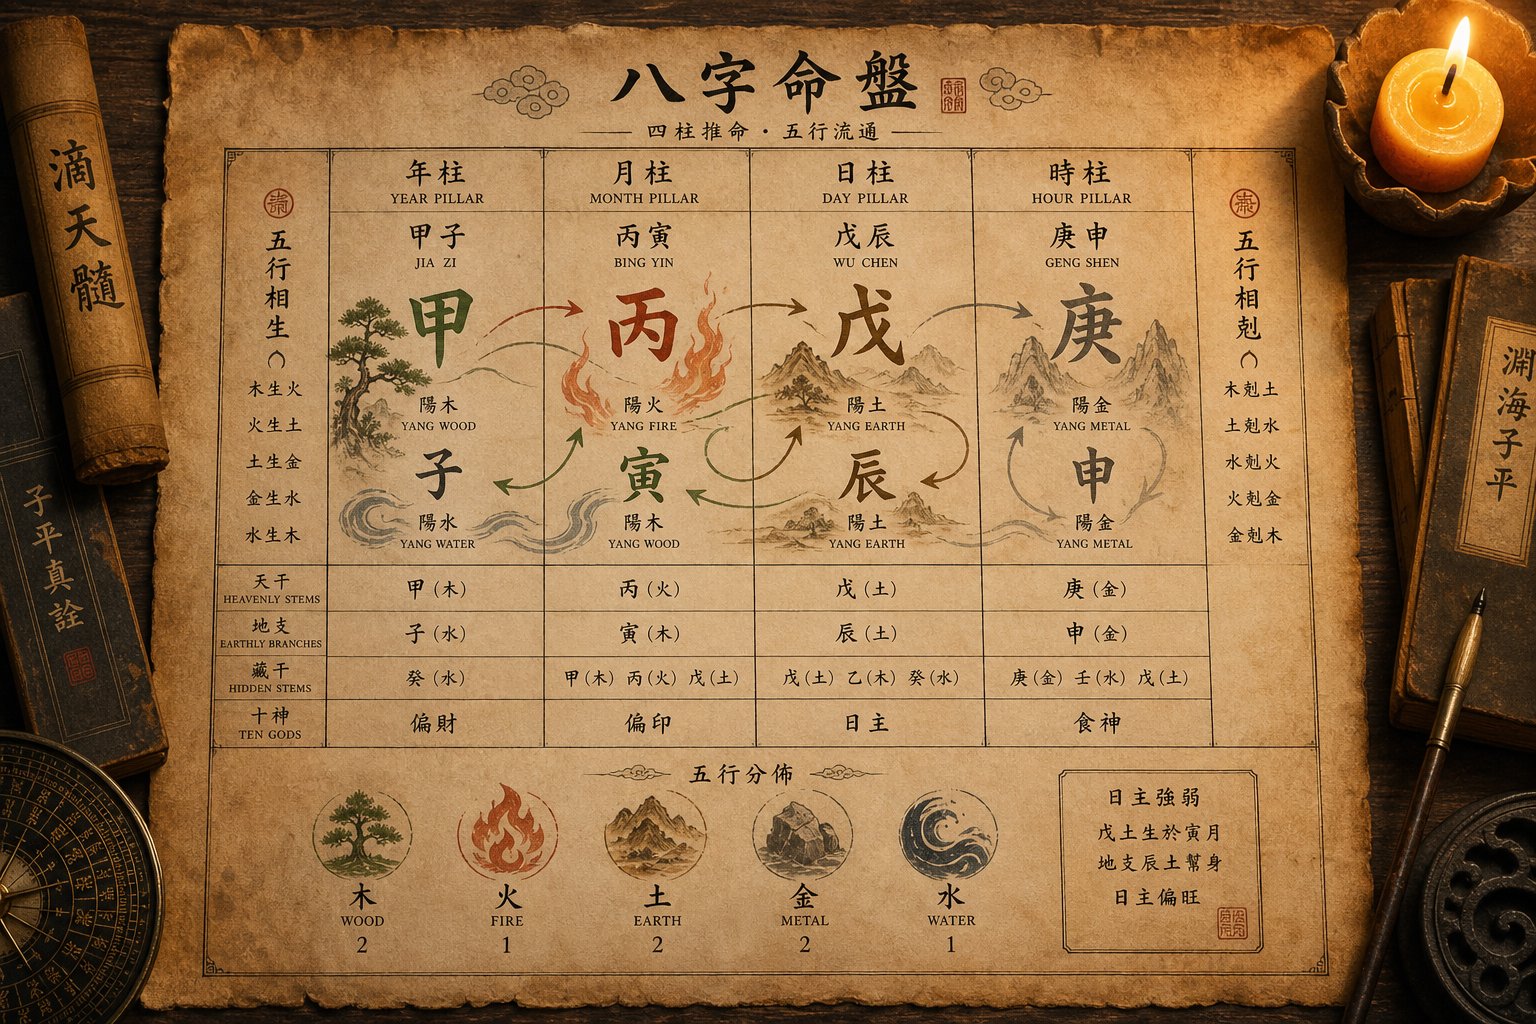 八字命盤
四柱推命・五行流通
五行相生
木生火
火生土
土生金
金生水
水生木
年柱
YEAR PILLAR
甲子
JIA ZI
甲
陽木
YANG WOOD
子
陽水
YANG WATER
月柱
MONTH PILLAR
丙寅
BING YIN
丙
陽火
YANG FIRE
寅
陽木
YANG WOOD
日柱
DAY PILLAR
戊辰
WU CHEN
戊
陽土
YANG EARTH
辰
陽土
YANG EARTH
時柱
HOUR PILLAR
庚申
GENG SHEN
庚
陽金
YANG METAL
申
陽金
YANG METAL
五行相剋
木剋土
土剋水
水剋火
火剋金
金剋木
天干
HEAVENLY STEMS
甲（木）
丙（火）
戊（土）
庚（金）
地支
EARTHLY BRANCHES
子（水）
寅（木）
辰（土）
申（金）
藏干
HIDDEN STEMS
癸（水）
甲（木） 丙（火） 戊（土）
戊（土） 乙（木） 癸（水）
庚（金） 壬（水） 戊（土）
十神
TEN GODS
偏財
偏印
日主
食神
五行分佈
木
WOOD
2
火
FIRE
1
土
EARTH
2
金
METAL
2
水
WATER
1
日主強弱
戊土生於寅月
地支辰土幫身
日主偏旺
滴天髓
子平真詮
淵海子平